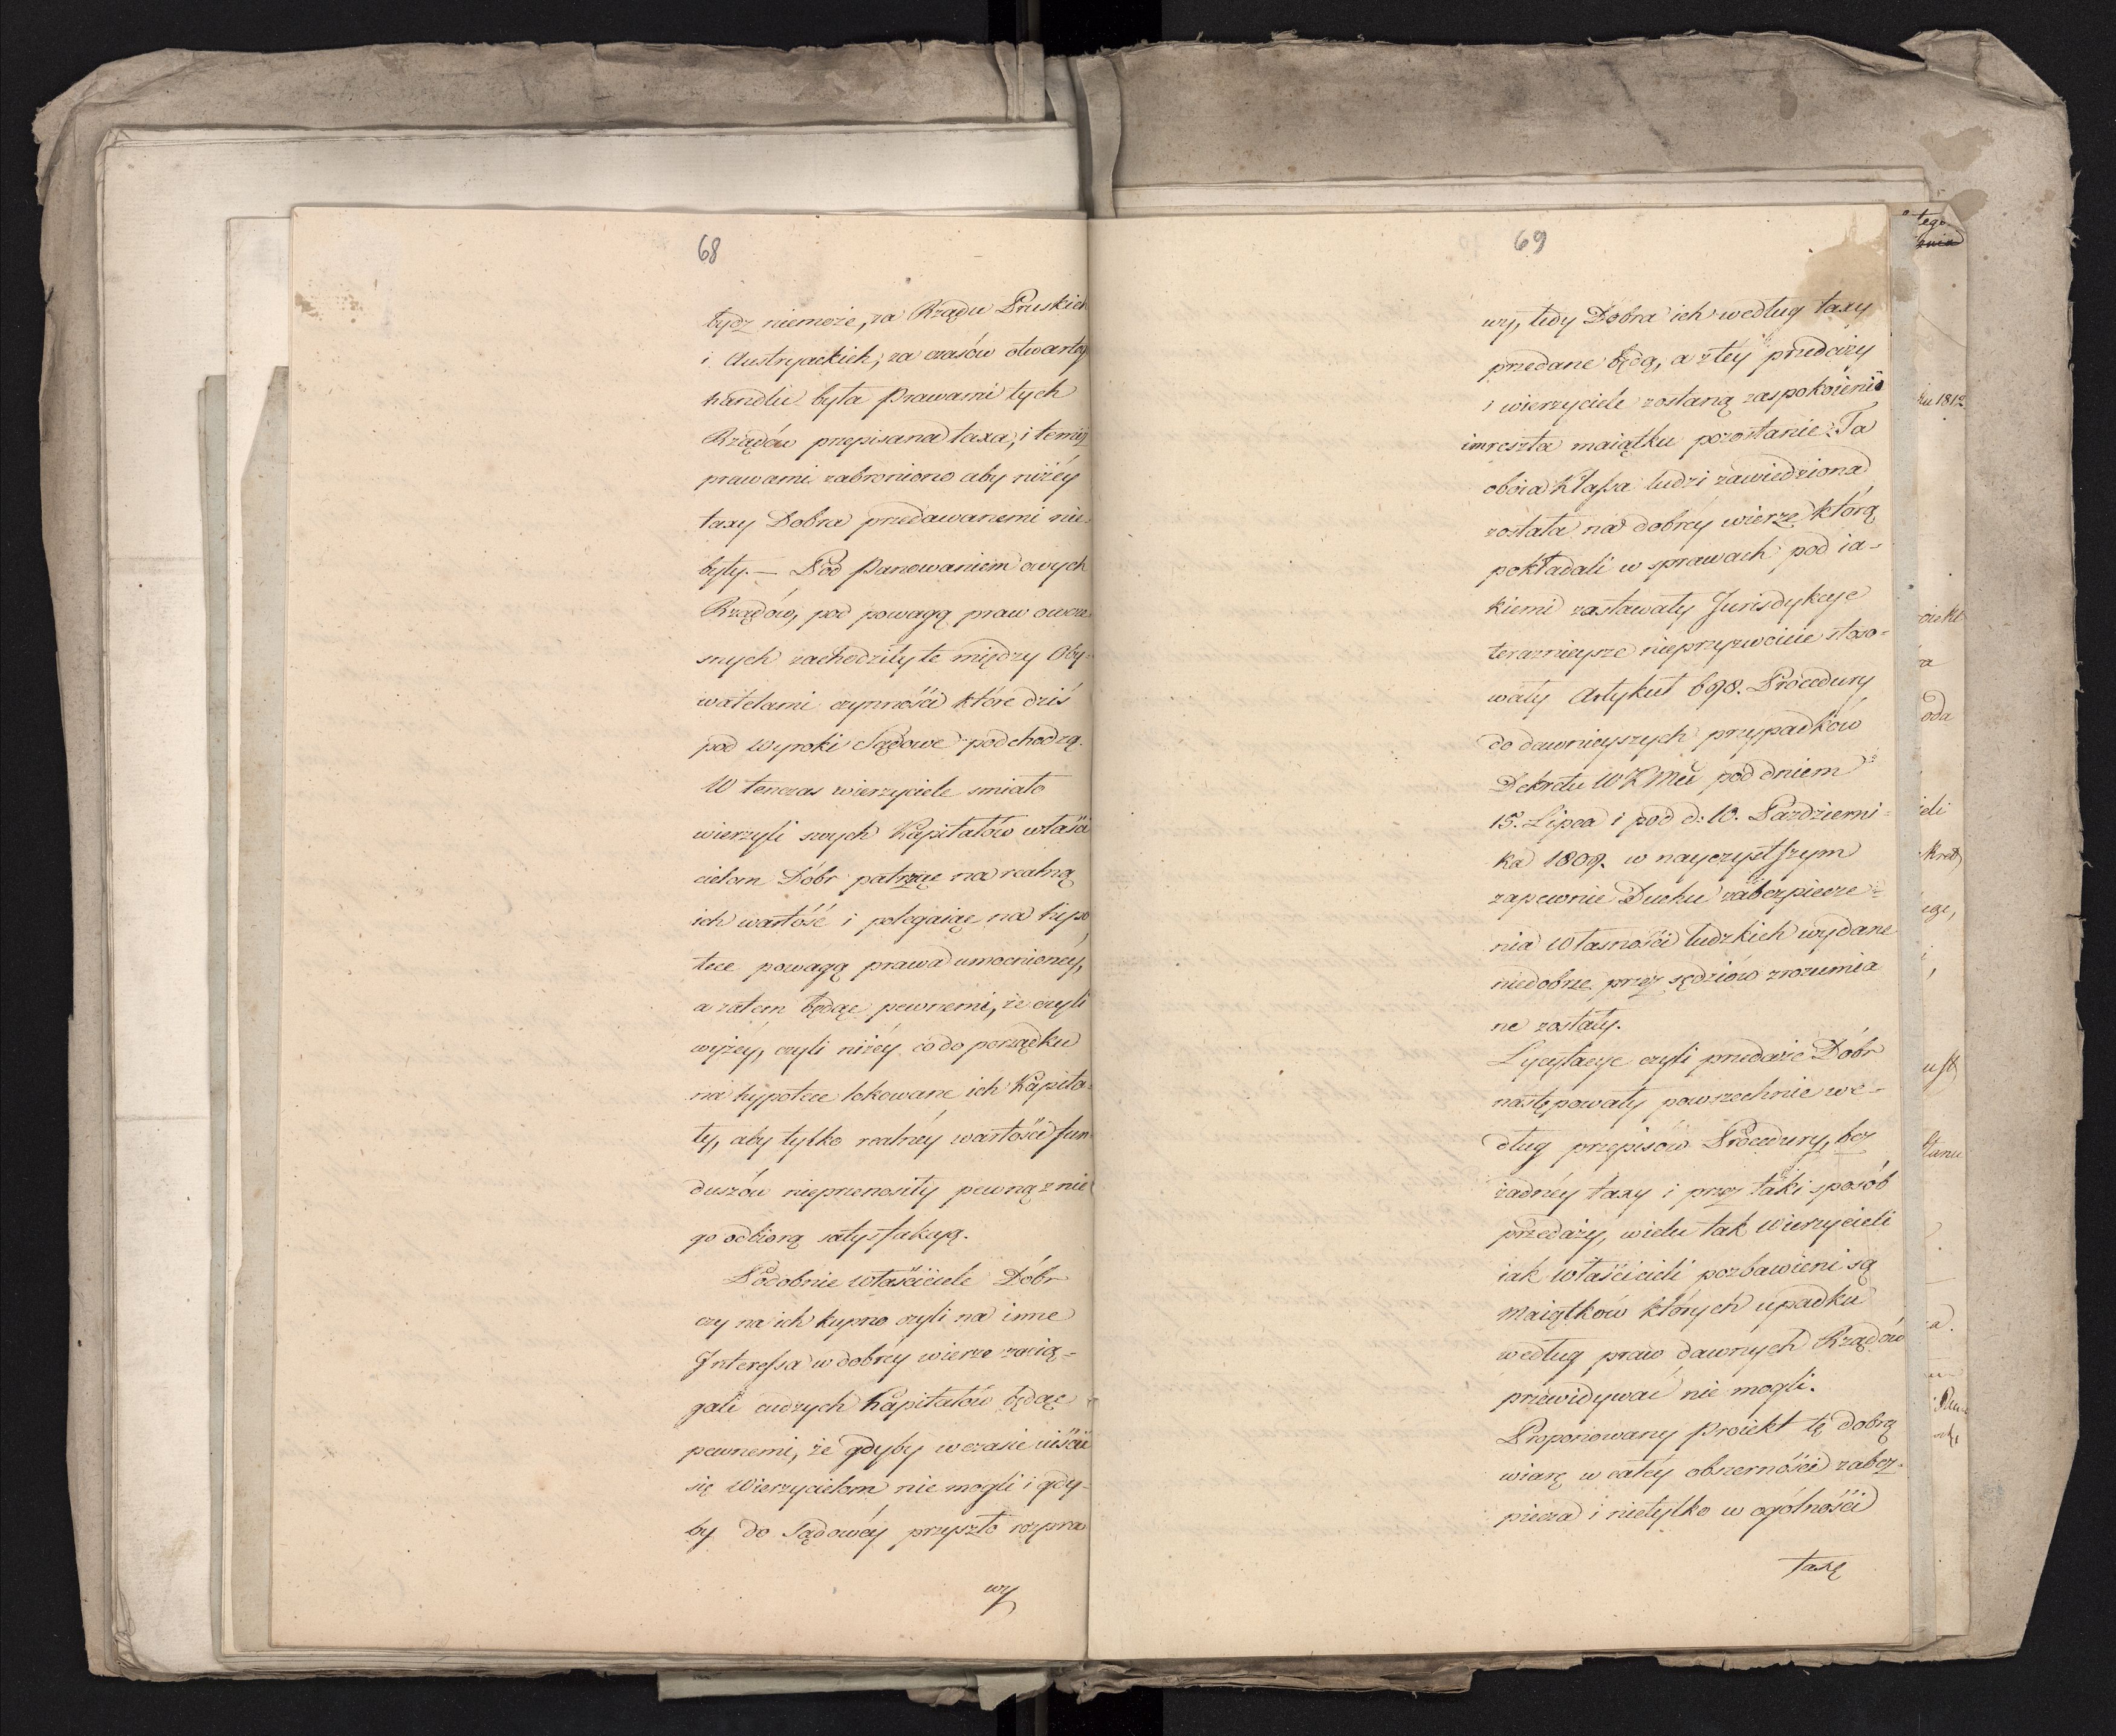 68
bydz niemoże, za Rządu Pruskich
i Austryackich, za czasów otwartey
handlu była Prawami tych
Rządów przepisana taxa, i temiż
prawami zabroniono aby niżéy
taxy Dobra przedawanemi nie
były. — Pod Panowaniem owych
Rządów, pod powagą praw owcze
snych zachodziły te między Oby-
watelami czynności które dziś
pod Wyroki Sądowe podchodzą.
W tenczas wierzyciele smiało
wierzyli swych Kapitałów właści
cielom Dóbr patrząc na realną
ich wartość i polegaiąc na hipo
tece powagą prawa umocnioney,
a zatem będąc pewnemi, że czyli
wyżey, czyli niżéy co do porządku
na hypotece lokowane ich Kapita-
ły, aby tylko realnéy wartości fun
duszów nieprzenosiły pewną z nie
go odbiorą satysfakcyą.
Podobnie właściciele Dóbr
czy na ich kupno czyli na inne
Interessa w dobrey wierze zacią-
gali cudzych Kapitałów będąc
pewnemi, że gdyby w czasie uiścić
się Wierzycielom nie mogli i gdy-
by do Sądowéy przyszło rozpra
wy
69
wy, tedy Dobra ich według taxy
przedane będą, a z téy przedaży
i wierzyciele zostaną zaspokoieni
im reszta maiątku pozostanie. Ta
oboia Klassa ludzi zawiedziona
została na dobrey wierze którą
pokładali w sprawach pod ia-
kiemi zostawały Jurisdykcye
teraznieysze nieprzyzwoicie stoso-
wały Artykuł 698. Procedury
do dawnieyszych przypadków
Dekretu WKMci pod dniem
15. Lipca i pod d: 10. Pazdzierni-
ka 1809. w nayczystszym
zapewnie Duchu zabezpiecze-
nia Własności ludzkich wydane
niedobrze przez sędziów zrozumia
ne zostały.
Lycytacye czyli przedaże Dóbr
następowały powszechnie we-
dług przepisów Procedury, bez
żadnéy taxy i przez taki sposób
przedaży, wielu tak Wierzycieli
iak Właścicieli pozbawieni są
Maiątków których upadku
według praw dawnych Rządów
przewidywać nie mogli.
Proponowany Proiekt tę dobrą
wiarę w całey obszerności zabez-
piecza i nietylko w ogólności
taxę
tego
ku 1812